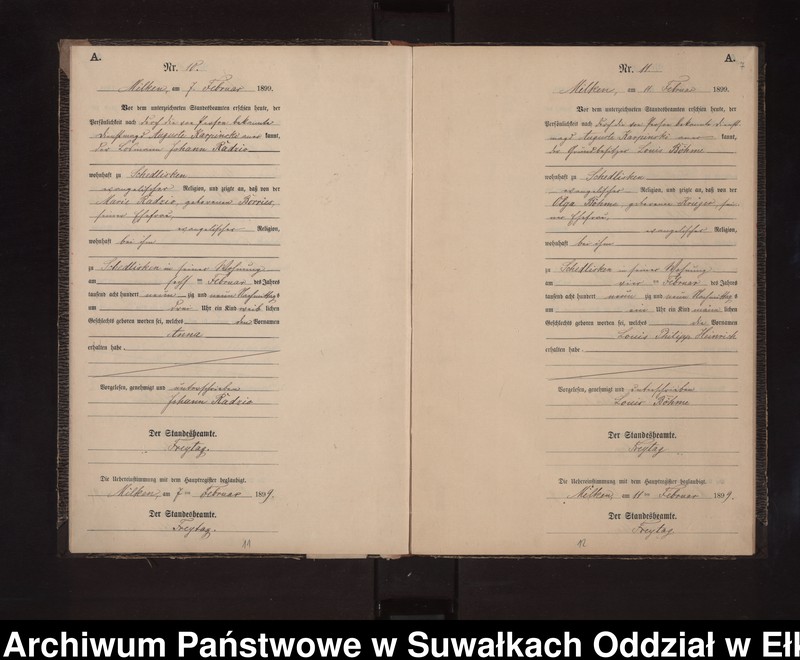 A.
Nr. 10.
Milken, am 7. Februar 1899.
Vor dem unterzeichneten Standesbeamten erschien heute, der
Persönlichkeit nach durch die von Person bekannte
Dienstmagd Auguste Karpinski aner kannt,
der Losmann Johann Radzio
wohnhaft zu Schedlisken
evangelischer Religion, und zeigte an, daß von der
Marie Radzio, geborenen
seiner Ehefrau,
evangelischer Religion,
wohnhaft bei ihm
zu Schedlisken in seiner Wohnung
am ten Februar des Jahres
tausend acht hundert neun zig und neun Nachmittags
um drei Uhr ein Kind weib lichen
Geschlechts geboren worden sei, welches den Vornamen
Anna
erhalten habe.
Vorgelesen, genehmigt und unterschrieben
Johann Radzio
Der Standesbeamte.
Freytag.
Die Uebereinstimmung mit dem Hauptregister beglaubigt.
Milken, am 7ten Februar 1899.
Der Standesbeamte.
Freytag.
11
A.
7
Nr. 11
Milken, am 11. Februar 1899.
Vor dem unterzeichneten Standesbeamten erschien heute, der
Persönlichkeit nach durch die von Person bekannte Dienst
magd Auguste Karpinski aner kannt,
der Grundbesitzer Louis Böhme
wohnhaft zu Schedlisken
evangelischer Religion, und zeigte an, daß von der
Olga Böhme, geborenen Krüger sei
ner Ehefrau,
evangelischer Religion,
wohnhaft bei ihm
zu Schedlisken in seiner Wohnung
am vier ten Februar des Jahres
tausend acht hundert neun zig und neun Nachmittag s
um ein Uhr ein Kind männ lichen
Geschlechts geboren worden sei, welches die Vornamen
Louis Philipp Heinrich
erhalten habe.
Vorgelesen, genehmigt und unterschrieben
Louis Böhme
Der Standesbeamte.
Freytag
Die Uebereinstimmung mit dem Hauptregister beglaubigt.
Milken, am 11ten Februar 1899.
Der Standesbeamte.
Freytag
12
Archiwum Państwowe w Suwałkach Oddział w Ełk